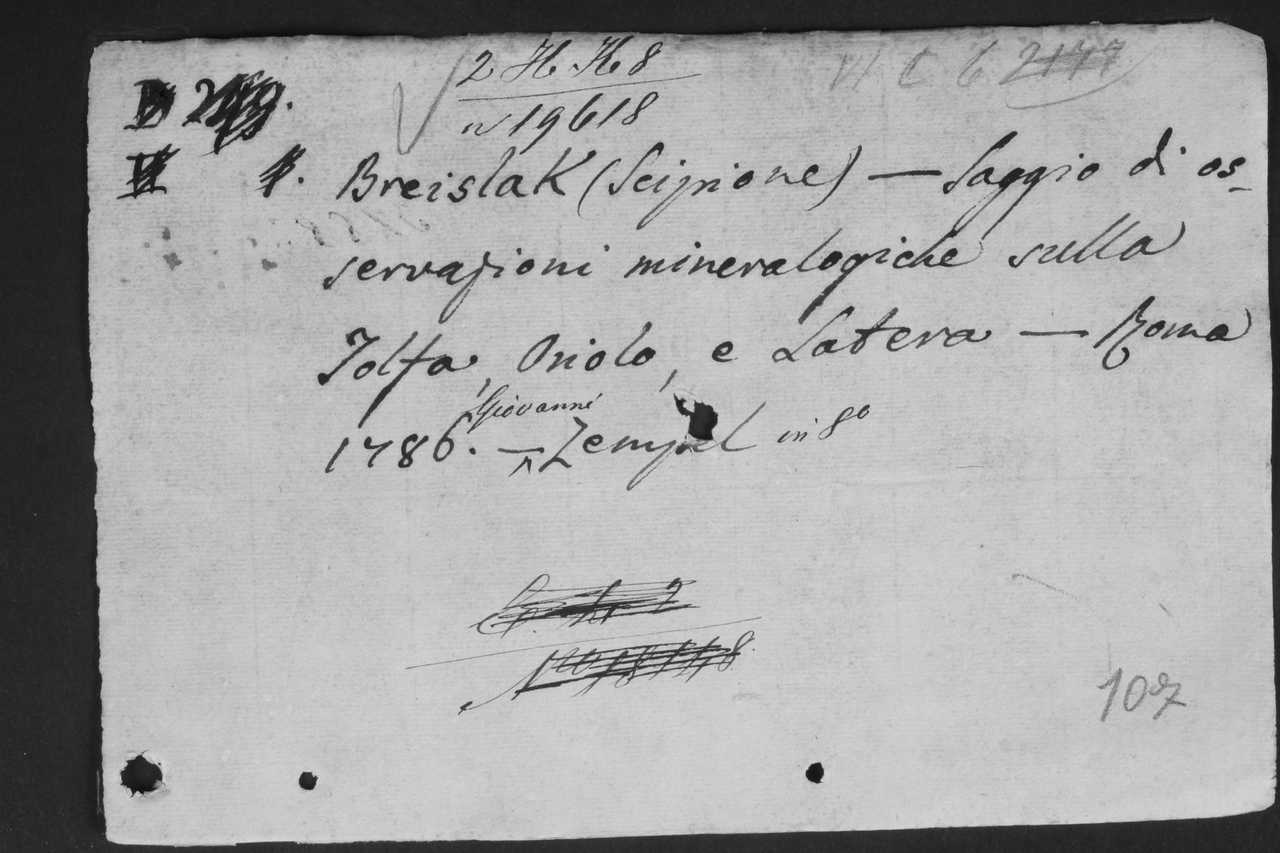 2 H. H. 8
n 19618
Breislak (Scipione) — Saggio di os-
servazioni mineralogiche sulla
Tolfa, Oriolo, e Latera — Roma
1786. — Giovanni Zempel in 8°
107